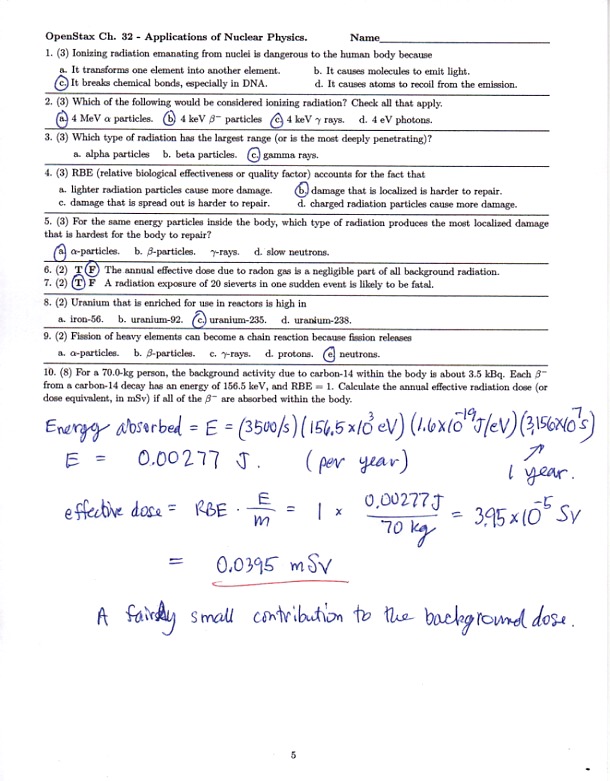 OpenStax Ch. 32 - Applications of Nuclear Physics. Name
1. (3) Ionizing radiation emanating from nuclei is dangerous to the human body because
a. It transforms one element into another element. b. It causes molecules to emit light.
c. It breaks chemical bonds, especially in DNA. d. It causes atoms to recoil from the emission.
2. (3) Which of the following would be considered ionizing radiation? Check all that apply.
a. 4 MeV α particles. b. 4 keV β⁻ particles c. 4 keV γ rays. d. 4 eV photons.
3. (3) Which type of radiation has the largest range (or is the most deeply penetrating)?
a. alpha particles b. beta particles. c. gamma rays.
4. (3) RBE (relative biological effectiveness or quality factor) accounts for the fact that
a. lighter radiation particles cause more damage. b. damage that is localized is harder to repair.
c. damage that is spread out is harder to repair. d. charged radiation particles cause more damage.
5. (3) For the same energy particles inside the body, which type of radiation produces the most localized damage
that is hardest for the body to repair?
a. α-particles. b. β-particles. γ-rays. d. slow neutrons.
6. (2) T F The annual effective dose due to radon gas is a negligible part of all background radiation.
7. (2) T F A radiation exposure of 20 sieverts in one sudden event is likely to be fatal.
8. (2) Uranium that is enriched for use in reactors is high in
a. iron-56. b. uranium-92. c. uranium-235. d. uranium-238.
9. (2) Fission of heavy elements can become a chain reaction because fission releases
a. α-particles. b. β-particles. c. γ-rays. d. protons. e. neutrons.
10. (8) For a 70.0-kg person, the background activity due to carbon-14 within the body is about 3.5 kBq. Each β⁻
from a carbon-14 decay has an energy of 156.5 keV, and RBE = 1. Calculate the annual effective radiation dose (or
dose equivalent, in mSv) if all of the β⁻ are absorbed within the body.
Energy absorbed = E = (3500/s)(156.5×10³ eV)(1.6×10⁻¹⁹ J/eV)(3.156×10⁷ s)
E = 0.00277 J. (per year) 1 year.
effective dose = RBE · E/m = 1 × 0.00277 J/70 kg = 3.95×10⁻⁵ Sv
= 0.0395 mSv
A fairly small contribution to the background dose.
5